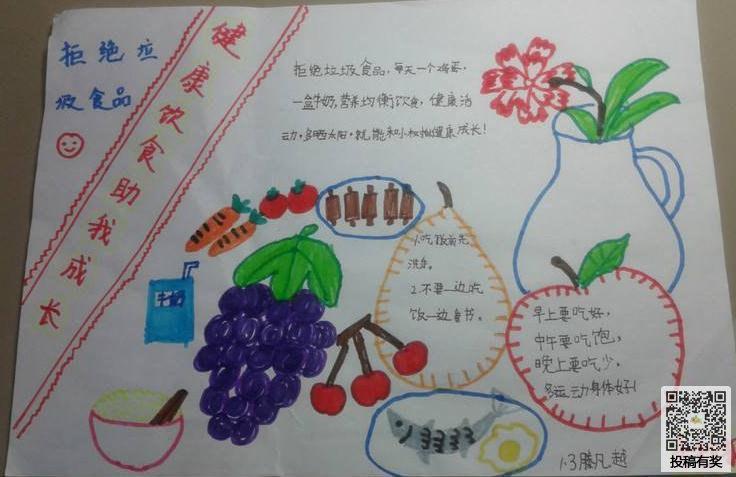 拒绝垃
圾食品
健康饮食助我成长
拒绝垃圾食品，每天一个鸡蛋，
一盒牛奶，营养均衡饮食，健康活
动，多晒太阳，就能和小松柏健康成长！
1.吃饭前先
洗手。
2.不要一边吃
饭一边看书。
早上要吃好，
中午要吃饱，
晚上要吃少，
多运动身体好！
牛奶
1.3滕凡越
投稿有奖